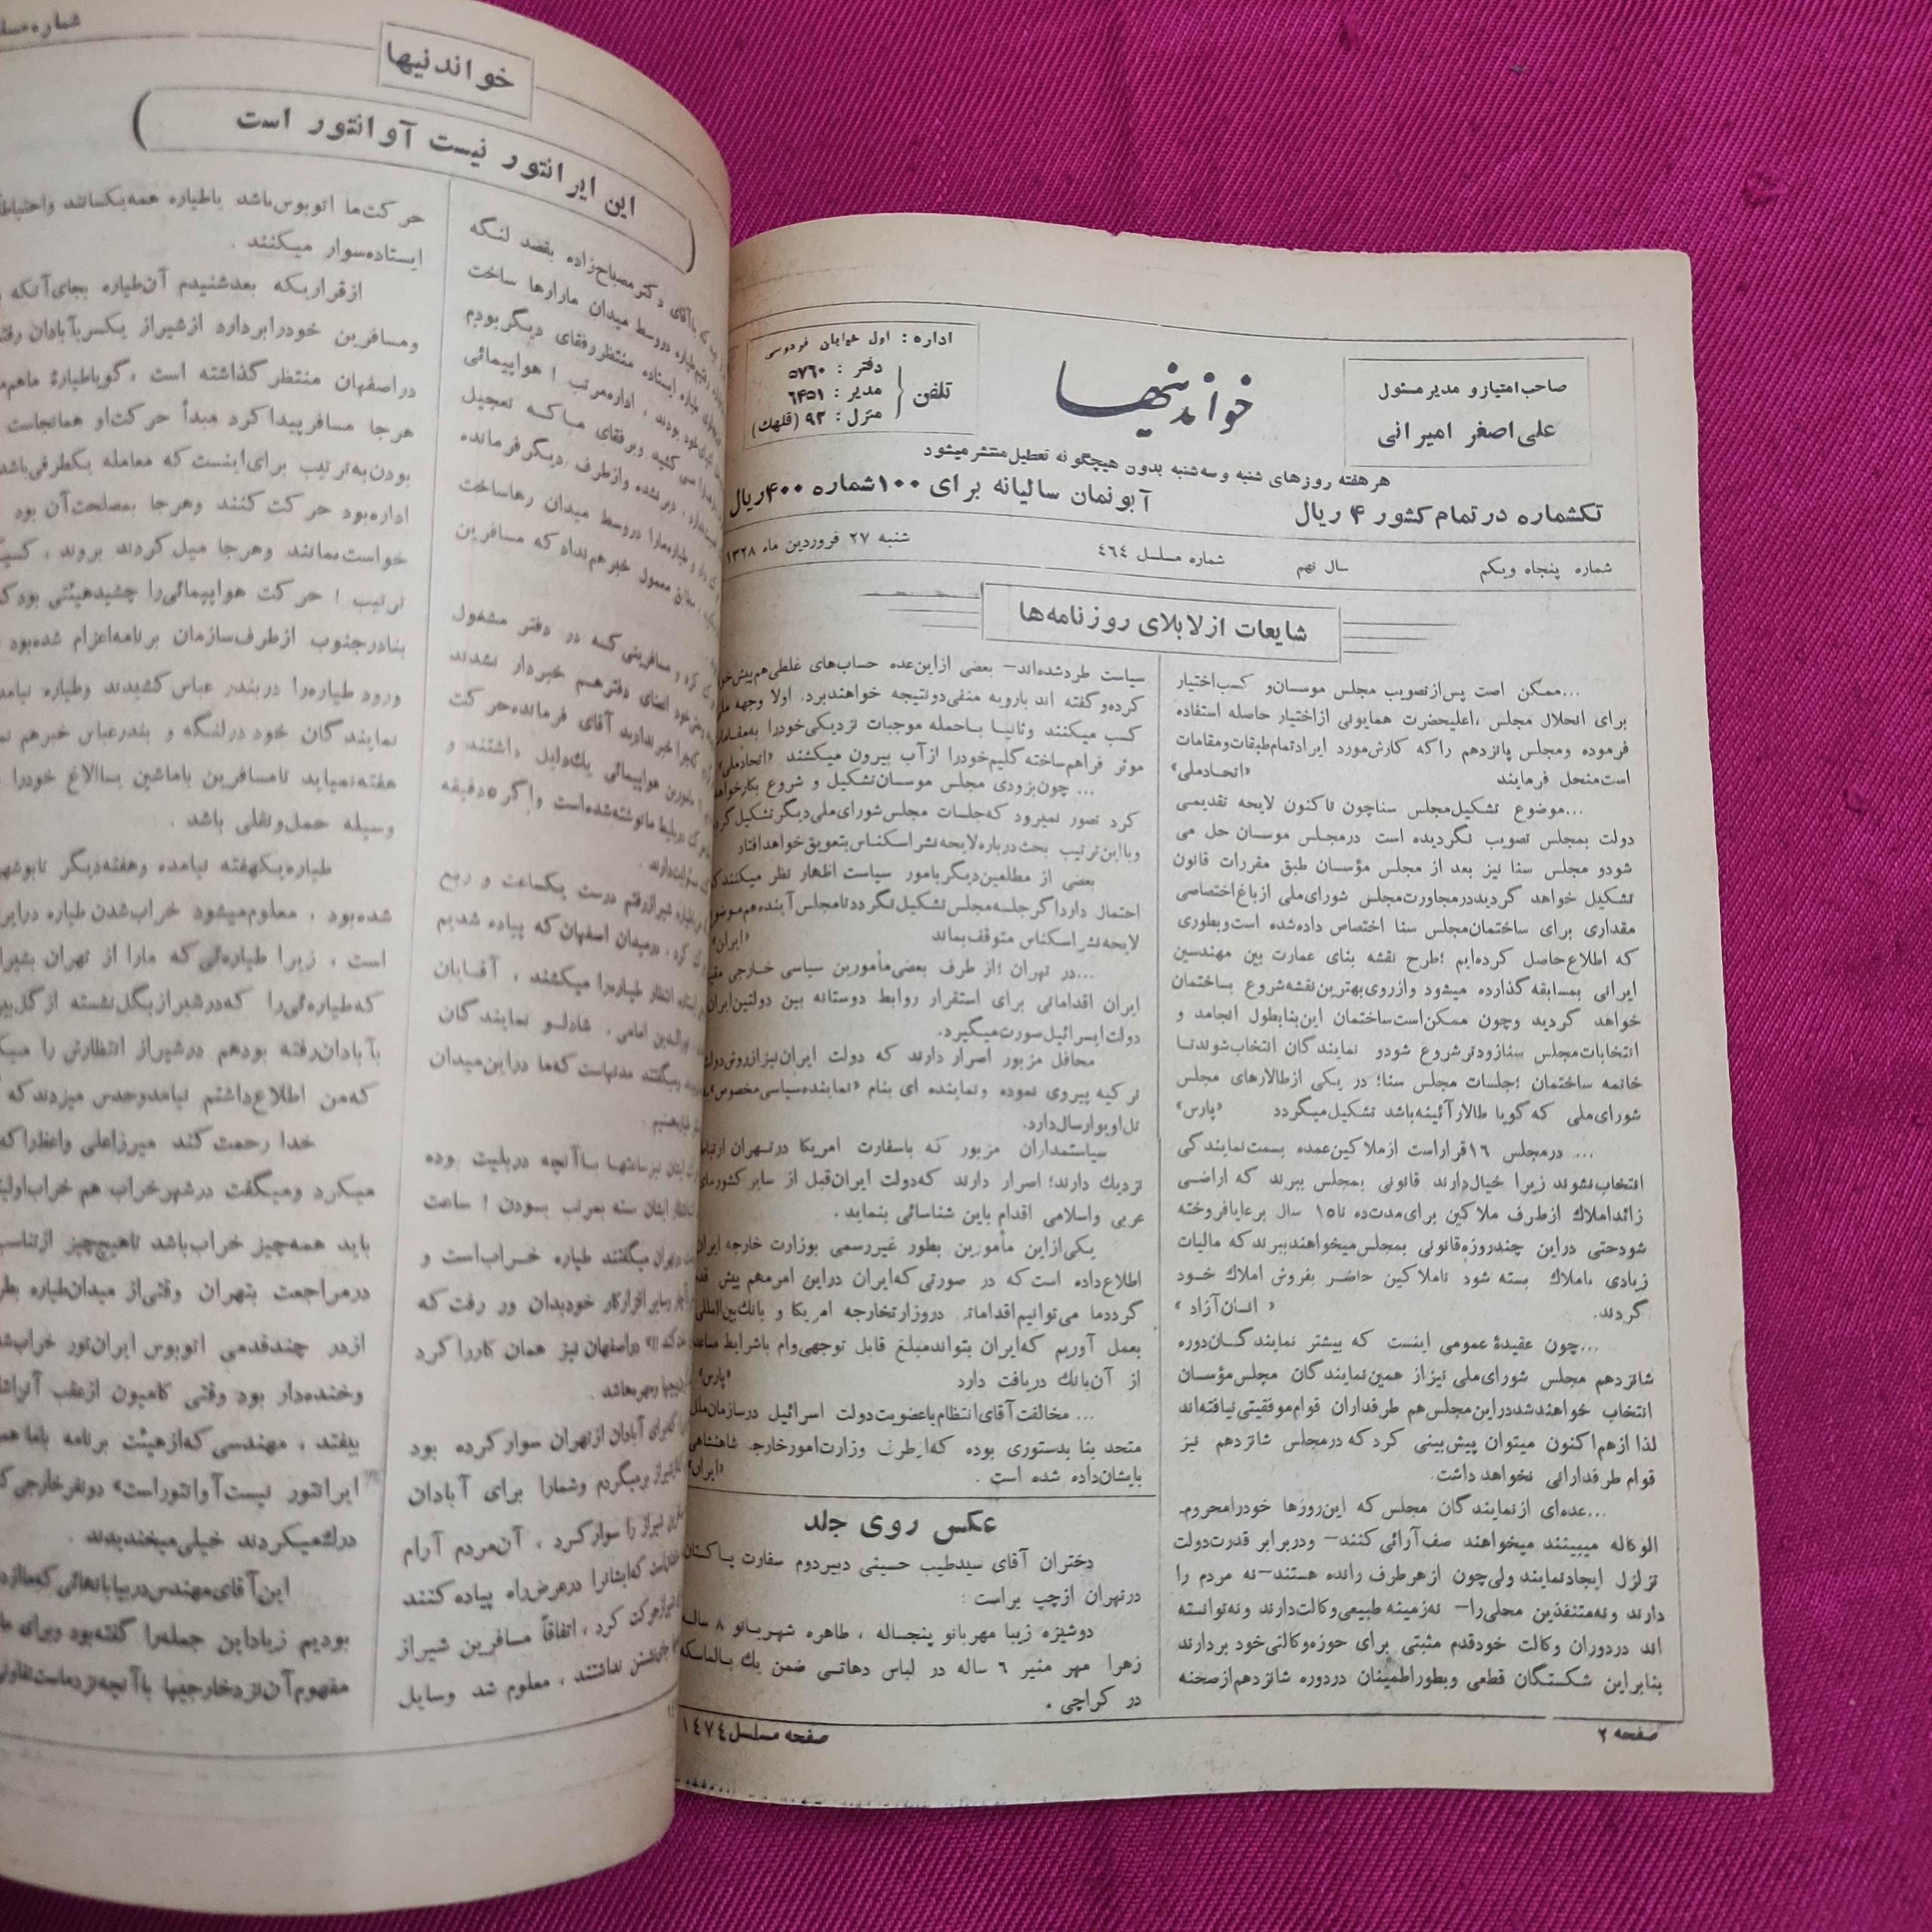 صاحب امتیاز و مدیر مسئول
علی اصغر امیرانی
خواندنیها
اداره : اول خیابان فردوسی
تلفن
دفتر : ۵۷۶۰
مدیر : ۶۴۵۱
منزل : ۹۳ (قلهک)
هر هفته روزهای شنبه و سه شنبه بدون هیچگونه تعطیل منتشر میشود
تکشماره در تمام کشور ۴ ریال
آبونمان سالیانه برای ۱۰۰ شماره ۴۰۰ ریال
شماره پنجاه ویکم
سال نهم
شماره مسلسل ٤٦٤
شنبه ۲۷ فروردین ماه ۱۳۲۸
شایعات از لابلای روزنامه‌ها
...ممکن است پس از تصویب مجلس موسسان و کسب اختیار
برای انحلال مجلس ،اعلیحضرت همایونی از اختیار حاصله استفاده
فرموده ومجلس پانزدهم را که کارش مورد ایراد تمام طبقات و مقامات
است منحل فرمایند «اتحاد ملی»
...موضوع تشکیل مجلس سنا چون تاکنون لایحه تقدیمی
دولت بمجلس تصویب نگردیده است درمجلس موسسان حل می
شود و مجلس سنا نیز بعد از مجلس مؤسسان طبق مقررات قانون
تشکیل خواهد گردید در مجاورت مجلس شورای ملی از باغ اختصاصی
مقداری برای ساختمان مجلس سنا اختصاص داده شده است و بطوری
که اطلاع حاصل کرده‌ایم ؛طرح نقشه بنای عمارت بین مهندسین
ایرانی بمسابقه گذارده میشود و از روی بهترین نقشه شروع بساختمان
خواهد گردید وچون ممکن است ساختمان این بنا بطول انجامد و
انتخابات مجلس سنا زودتر شروع شود و نمایندگان انتخاب شوند تا
خاتمه ساختمان ؛جلسات مجلس سنا؛ در یکی از طالارهای مجلس
شورای ملی که گویا طالار آئینه باشد تشکیل میگردد «پارس»
... درمجلس ۱٦ قرار است از ملاکین عمده بسمت نمایندگی
انتخاب نشوند زیرا خیال دارند قانونی بمجلس ببرند که اراضی
زائد املاك از طرف ملاکین برای مدت ده تا ۱۵ سال برعایا فروخته
شود حتی در این چند روزه قانونی بمجلس میخواهند ببرند که مالیات
زیادی باملاك بسته شود تا ملاکین حاضر بفروش املاك خود
گردند. « انسان آزاد »
...چون عقیدهٔ عمومی اینست که بیشتر نمایندگان دوره
شانزدهم مجلس شورای ملی نیز از همین نمایندگان مجلس مؤسسان
انتخاب خواهند شد در این مجلس هم طرفداران قوام موفقیتی نیافته‌اند
لذا از هم اکنون میتوان پیش بینی کرد که در مجلس شانزدهم نیز
قوام طرفدارانی نخواهد داشت.
...عده‌ای از نمایندگان مجلس که این روزها خود را محروم
الوکاله میبینند میخواهند صف آرائی کنند – ودر برابر قدرت دولت
تزلزل ایجاد نمایند ولی چون از هر طرف رانده هستند – نه مردم را
دارند ونه متنفذین محلی را – نه زمینه طبیعی وکالت دارند و نه توانسته
اند در دوران وکالت خود قدم مثبتی برای حوزه وکالتی خود بردارند
بنابراین شکستگان قطعی و بطور اطمینان در دوره شانزدهم از صحنه
سیاست طرد شده‌اند – بعضی از این عده حساب‌های غلطی هم پیش خود
کرده و گفته اند با رویه منفی دو نتیجه خواهند برد. اولا وجهه ملی
کسب میکنند وثانیا با حمله موجبات نزدیکی خود را به مقامات
موثر فراهم ساخته گلیم خود را از آب بیرون میکشند «اتحاد ملی»
... چون بزودی مجلس موسسان تشکیل و شروع بکار خواهد
کرد تصور نمیرود که جلسات مجلس شورای ملی دیگر تشکیل گردد
وبا این ترتیب بحث در باره لایحه نشر اسکناس بتعویق خواهد افتاد
بعضی از مطلعین دیگر بامور سیاست اظهار نظر میکنند که
احتمال دارد اگر جلسه مجلس تشکیل نگردد تا مجلس آینده هم موضوع
لایحه نشر اسکناس متوقف بماند «ایران»
...در تهران ؛از طرف بعضی مأمورین سیاسی خارجی مقیم
ایران اقداماتی برای استقرار روابط دوستانه بین دولتین ایران
دولت اسرائیل صورت میگیرد.
محافل مزبور اصرار دارند که دولت ایران نیز از روش دولت
ترکیه پیروی نموده و نماینده ای بنام «نماینده سیاسی مخصوص»
تل اویو ارسال دارد.
سیاستمداران مزبور که باسفارت امریکا در تهران ارتباط
نزدیك دارند؛ اصرار دارند که دولت ایران قبل از سایر کشورهای
عربی واسلامی اقدام باین شناسائی بنماید .
یکی از این مأمورین بطور غیر رسمی بوزارت خارجه ایران
اطلاع داده است که در صورتی که ایران در این امر مهم پیش قدم
گردد ما می‌توانیم اقداماتی در وزارتخارجه امریکا و بانك بین المللی
بعمل آوریم که ایران بتواند مبلغ قابل توجهی وام باشرایط مساعد
از آن بانك دریافت دارد «پارس»
... مخالفت آقای انتظام باعضویت دولت اسرائیل در سازمان ملل
متحد بنا بدستوری بوده که از طرف وزارت امور خارجه شاهنشاهی
بایشان داده شده است . «ایران»
عکس روی جلد
دختران آقای سید طیب حسینی دبیر دوم سفارت پاکستان
در تهران از چپ براست :
دوشیزه زیبا مهربانو پنجساله ، طاهره شهربانو ۸ ساله
زهرا مهر منیر ٦ ساله در لباس دهاتی ضمن یك بالماسکه
در کراچی .
صفحه ۲
صفحه مسلسل ۱٤٧٤
خواندنیها
این ایرانتور نیست آوانتور است
آقای دکتر مصباح زاده بقصد لنگه
وسط میدان مارارها ساخت
ایستاده منتظر رفقای دیگر بودم
اداره مرتب ! هواپیمائی
وبرفقای ما که تعجیل
دیر نشده وازطرف دیگر فرمانده
طیاره مارا دروسط میدان رها ساخت
معمول خبر هم نداد که مسافرین
و مسافرینی که در دفتر مشغول
اعضای دفتر هم خبردار نشدند
آقای فرمانده حرکت
هواپیمائی یك دلیل داشتند و
بلیط ما نوشته شده است واگر ۵ دقیقه
شیراز رفتم درست یکساعت و ربع
درمیدان اصفهان که پیاده شدیم
انتظار طیاره را میکشند ، آقایان
امامی . شادلو نمایندگان
میگفتند مدتهاست که ما در این میدان
نیز ساعتها با آنچه در بلیت بوده
ایشان سته بمرتب بودن ! ساعت
میگفتند طیاره خراب است و
ابزار کار خودبدان ور رفت که
دراصفهان نیز همان کار را کرد
برای آبادان از تهران سوار کرده بود
برمیگردم وشما را برای آبادان
را سوار کرد ، آن مردم آرام
که ایشانرا در عرض راه پیاده کنند
حرکت کرد ، اتفاقاً مسافرین شیراز
نداشتند ، معلوم شد وسایل
حرکت ما اتوبوس باشد یا طیاره همه یکسانند واحتیاطا
ایستاده سوار میکنند .
از قراریکه بعد شنیدم آن طیاره بجای آنکه
ومسافرین خود را بردارد از شیراز یکسر بآبادان رفته
در اصفهان منتظر گذاشته است ، گویا طیارهٔ ما هم
هرجا مسافر پیدا کرد مبدأ حرکت او همانجاست
بودن به ترتیب برای اینست که معامله یکطرفی باشد
اداره بود حرکت کنند وهرجا بمصلحت آن بود
خواست بمانند وهرجا میل کردند بروند ،
ترتیب ! حرکت هواپیمائی را چشید هیئتی بود که
بنادر جنوب از طرف سازمان برنامه اعزام شده بود
ورود طیاره را در بندر عباس کشیدند وطیاره نیامد
نمایندگان خود در لنگه و بندرعباس خبر هم
هفته نمیاید تا مسافرین با ماشین یا الاغ خود را
وسیله حمل ونقلی باشد .
طیاره یکهفته نیامده وهفته دیگر تا بوشهر
شده بود ، معلوم میشود خراب شدن طیاره در ایران
است ، زیرا طیاره‌ئی که مارا از تهران بشیراز
که طیاره‌ئی را که در شیراز بگل نشسته از گل
بآبادان رفته بود هم در شیراز انتظارش را
که من اطلاع داشتم نیامد و حدس میزدند که
خدا رحمت کند میرزاعلی واعظ را که
میکرد ومیگفت در شهر خراب هم خراب اولیتر
باید همه چیز خراب باشد تا هیچ چیز از تناسب
در مراجعت بتهران وقتی از میدان طیاره
از در چند قدمی اتوبوس ایران تور خراب شد
وخنده دار بود وقتی کامیون از عقب آنرا
بیفتد ، مهندسی که از هیئت برنامه باما
ایرانتور نیست آوانتور است» دو نفر خارجی که
درك میکردند خیلی میخندیدند .
این آقای مهندس در بیابانهائی که ما
بودیم زیاد این جمله را گفته بود وبرای ما
مفهوم آن نزد خارجیها با آنچه نزد ماست